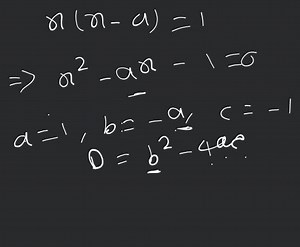 x(x-a)=1
=> x² - ax - 1 = 0
a=1, b=-a, c=-1
D = b² - 4ac